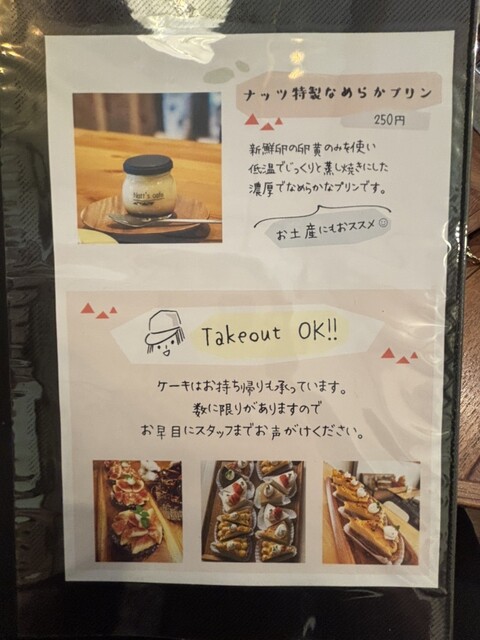 ナッツ特製なめらかプリン
250円
新鮮卵の卵黄のみを使い
低温でじっくりと蒸し焼きにした
濃厚でなめらかなプリンです。
お土産にもおススメ☺
Natt's cafe
Takeout OK!!
ケーキはお持ち帰りも承っています。
数に限りがありますので
お早目にスタッフまでお声がけください。